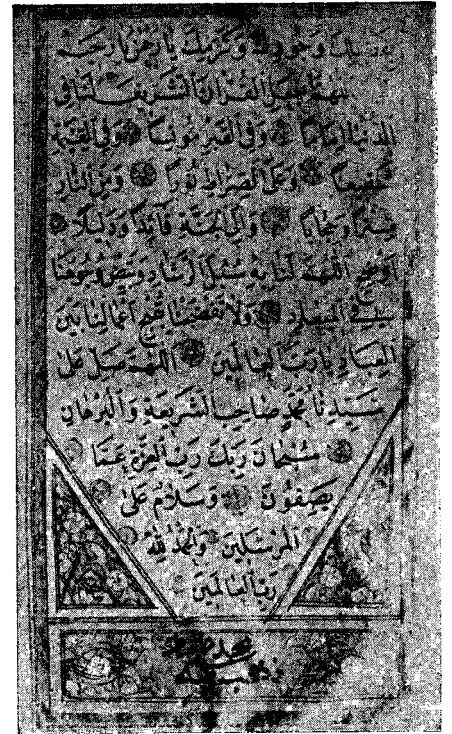 بفضلك وجودك وكرمك يا رحمن يا رحيم
اللهم اجعل القران الشريف لنا في
الدنيا اماما وفي القبر مونسا وفي القيمة
شفيعا وعلى الصراط نورا ومن النار
سترا وحجابا والى الجنة قائدا ودليلا
اوضح اللهم لنا به سبل الرشاد وبيض وجوهنا
به في الميعاد ولا تفضحنا بقبح اعمالنا بين
العباد يا رب العالمين اللهم صل على
سيدنا محمد صاحب الشريعة والبرهان
سبحان ربك رب العزة عما
يصفون وسلام على
المرسلين والحمد لله
رب العالمين